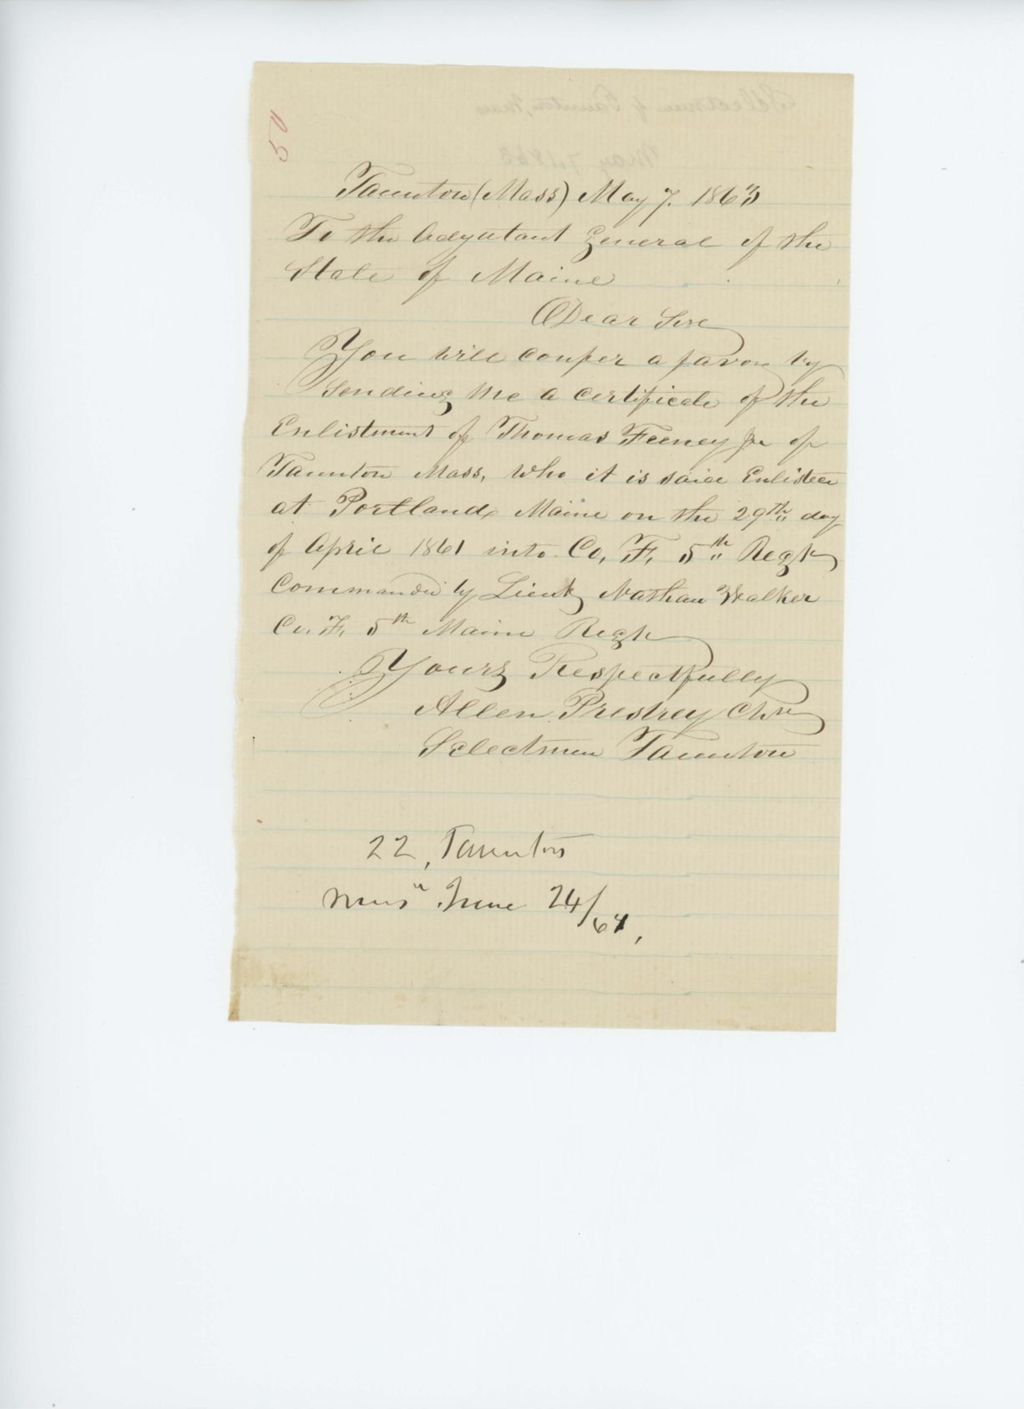 50
Taunton (Mass) May 7. 1863
To the Adjutant General of the
State of Maine
Dear Sire
You will confer a favor by
sending me a certificate of the
Enlistment of Thomas Feeney Jr of
Taunton Mass, who it is said Enlisted
at Portland, Maine on the 29th day
of April 1861 into Co, F, 5th Regt
Commanded by Lieut Nathan Walker
Co. F, 5th Maine Regt
Yours Respectfully
Allen Presbrey Chn
Selectmen Taunton
22, Taunton
June 24/61,